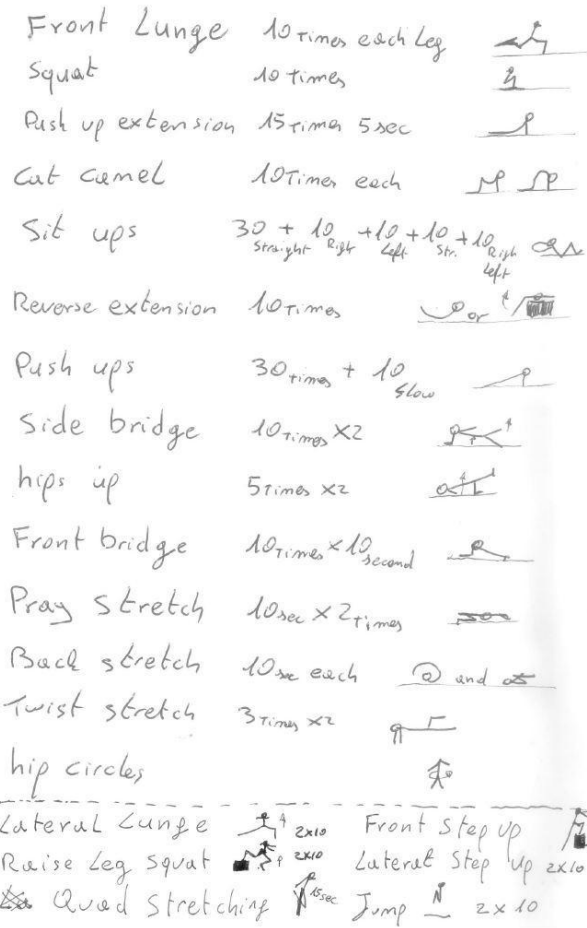 Front Lunge 10 Times each Leg
Squat 10 Times
Push up extension 15 Times 5 sec
Cat camel 10 Times each
Sit ups 30 Straight + 10 Righ + 10 Left + 10 Str. + 10 Righ Left
Reverse extension 10 Times or
Push ups 30 times + 10 Slow
Side bridge 10 Times X2
hips up 5 Times X2
Front bridge 10 Times X 10 second
Pray stretch 10 sec X 2 Times
Back stretch 10 sec each and
Twist stretch 3 Times X2
hip circles
Lateral Lunge 2x10 Front Step up
Raise Leg Squat 2x10 Lateral Step up 2x10
Quad Stretching 15 sec Jump 2 x 10